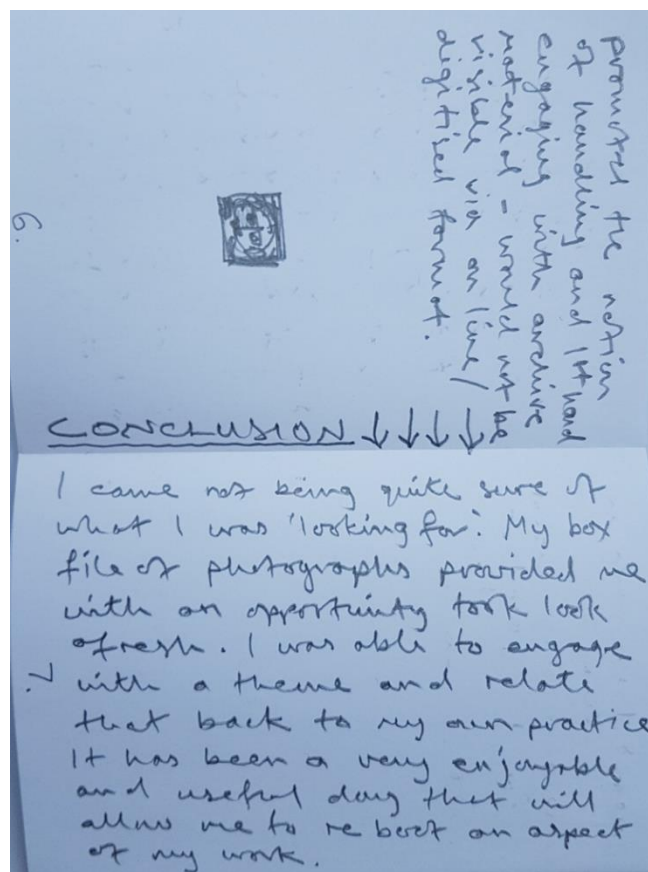 promotes the notion
of handling and 1st hand
engaging with archive
material - would not be
visible via on line/
digitised format.
6.
CONCLUSION ↓↓↓↓
I came not being quite sure of
what I was 'looking for'. My box
file of photographs provided me
with an opportunity took look
afresh. I was able to engage
with a theme and relate
that back to my own practice
It has been a very enjoyable
and useful day that will
allow me to re boot an aspect
of my work.
7.